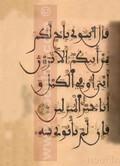 قال ائتوني بأخ لكم
من أبيكم ألا ترون
أني أوفي الكيل و
أنا خير المنزلين
فإن لم تأتوني به